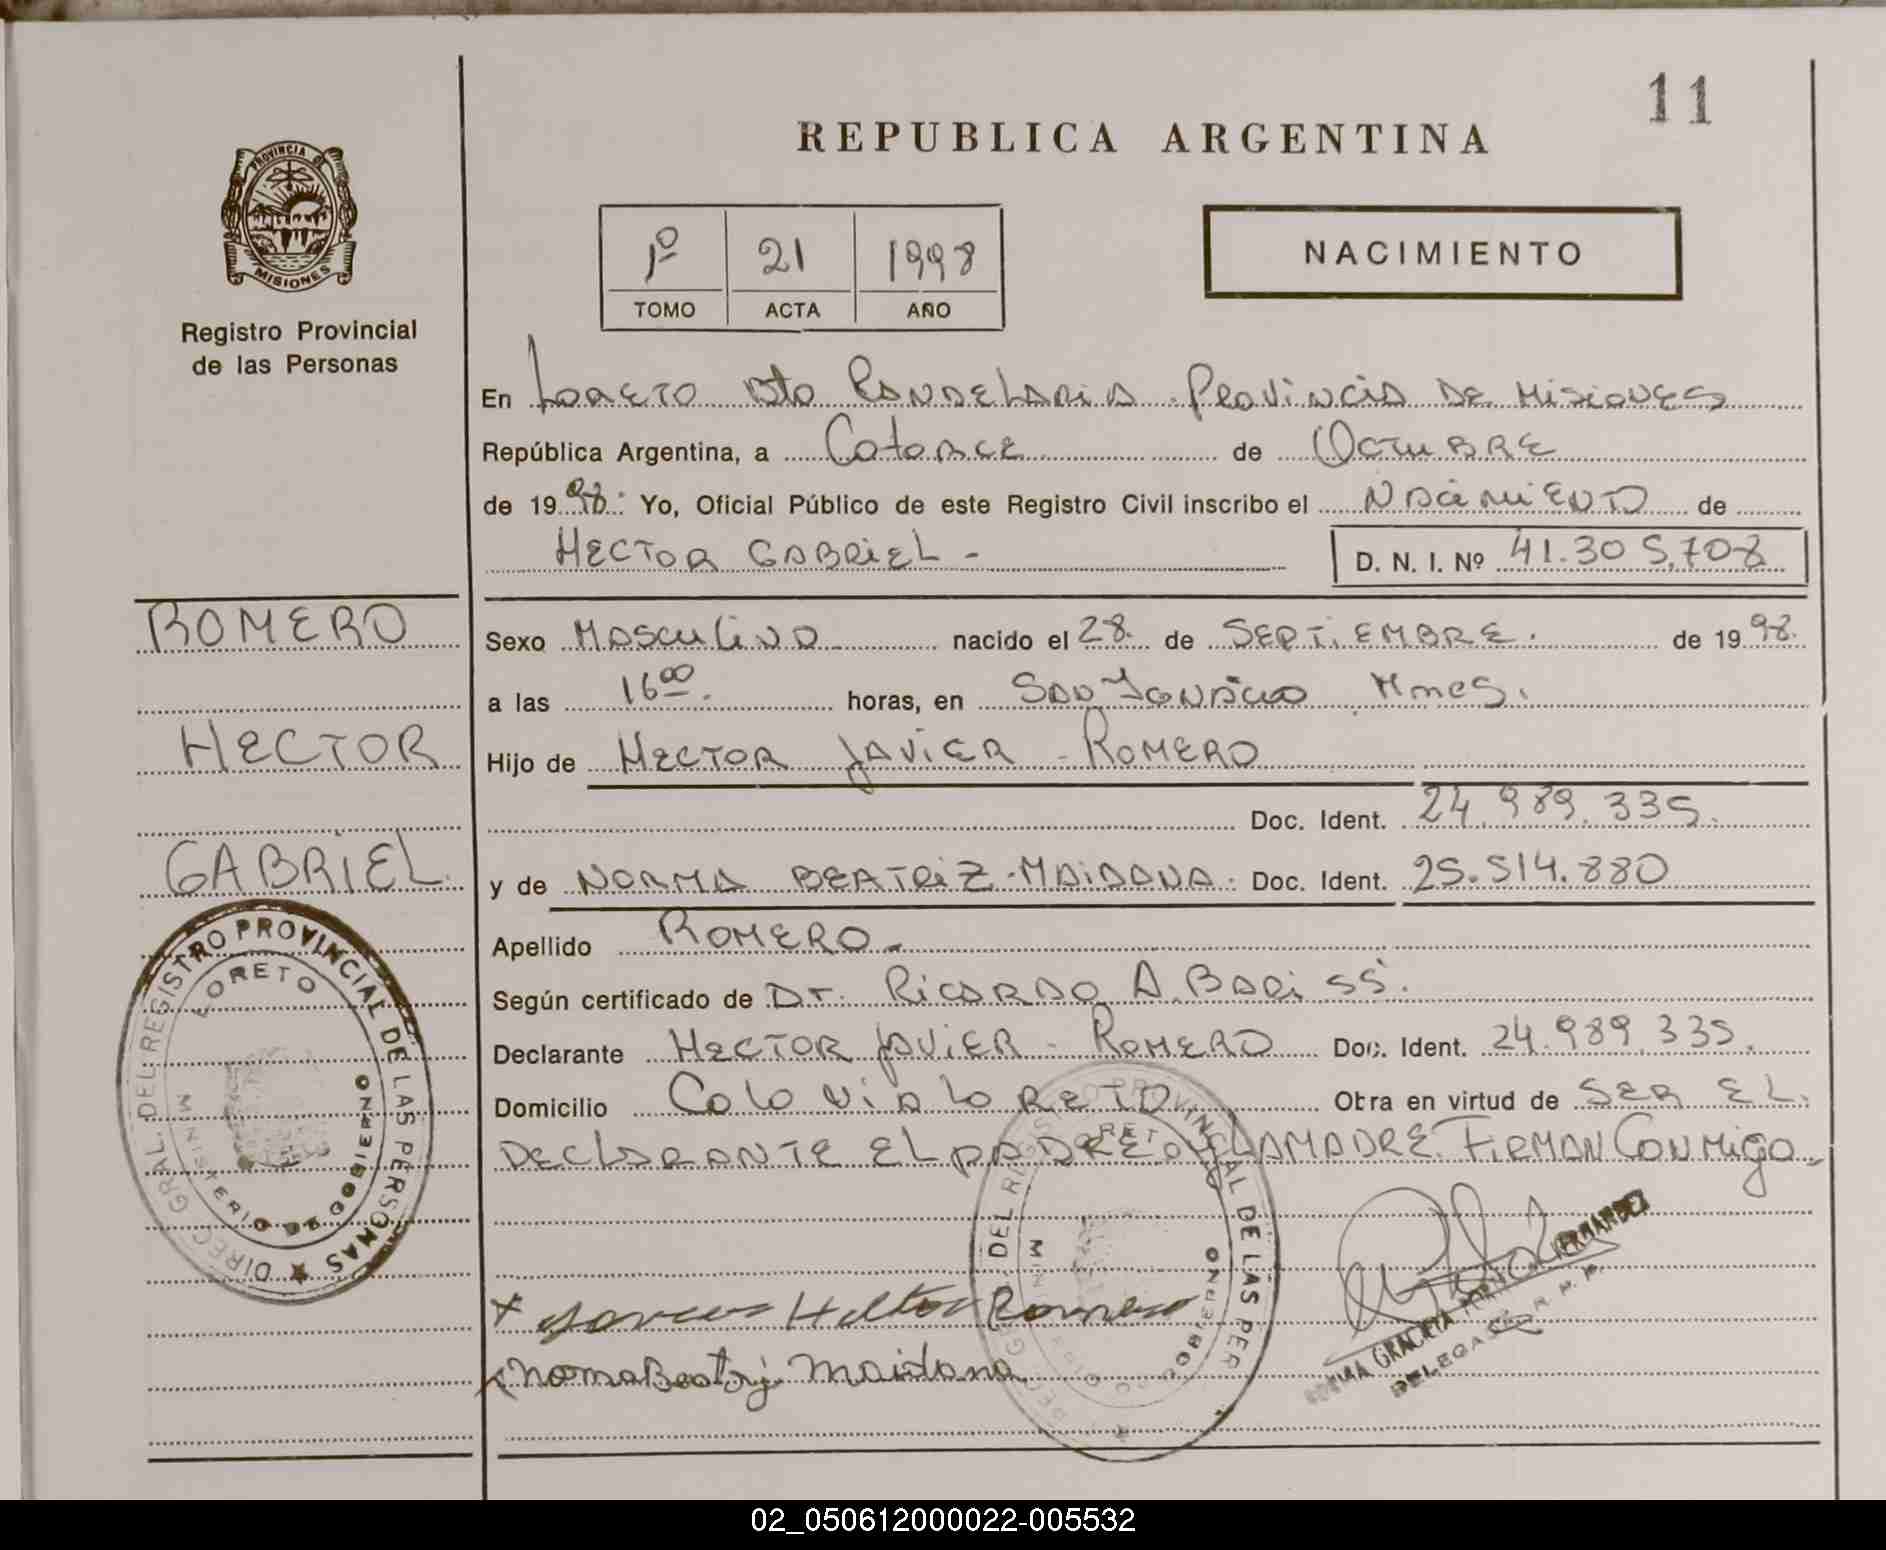 11
REPUBLICA ARGENTINA
PROVINCIA DE
MISIONES
Registro Provincial
de las Personas
1º 21 1998
TOMO ACTA AÑO
NACIMIENTO
En LORETO Dto CANDELARIA PROVINCIA DE MISIONES
República Argentina, a Catorce de OCTUBRE
de 1998. Yo, Oficial Público de este Registro Civil inscribo el NACIMIENTO de
HECTOR GABRIEL - D. N. I. Nº 41.305.708
ROMERO
HECTOR
GABRIEL.
Sexo MASCULINO nacido el 28. de SEPTIEMBRE. de 1998.
a las 16 00. horas, en SAN IGNACIO Mnes.
Hijo de HECTOR JAVIER - ROMERO
Doc. Ident. 24.989.335.
y de NORMA BEATRIZ - MAIDANA. Doc. Ident. 25.514.880
Apellido ROMERO -
Según certificado de Dr. RICARDO A.
Declarante HECTOR JAVIER - ROMERO Doc. Ident. 24.989.335.
Domicilio COLONIA LORETO Obra en virtud de SER EL
DECLARANTE EL PADRE y LA MADRE. FIRMAN CONMIGO.
DIREC. GRAL. DEL REGISTRO PROVINCIAL DE LAS PERSONAS
LORETO
MINISTERIO DE GOBIERNO
DEL REGISTRO PROVINCIAL DE LAS PER
x Romero
x Norma Beatriz Maidana
GRACIELA FERNANDEZ
DELEGADA R. P.
02_050612000022-005532